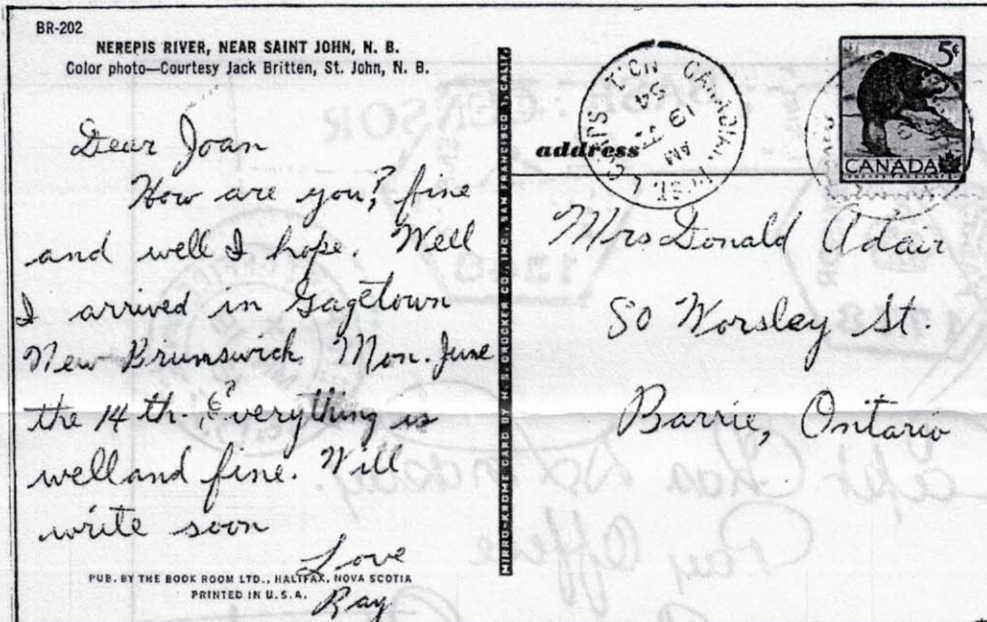 BR-202
NEREPIS RIVER, NEAR SAINT JOHN, N. B.
Color photo—Courtesy Jack Britten, St. John, N. B.
Dear Joan
How are you? fine
and well I hope. Well
I arrived in Gagetown
New Brumswick Mon. June
the 14 th. Everything is
well and fine. Will
write soon
Love
Ray
PUB. BY THE BOOK ROOM LTD., HALIFAX, NOVA SCOTIA
PRINTED IN U.S.A.
MIRRO-KROME CARD BY H. S. CROCKER CO., INC., SAN FRANCISCO 1, CALIF.
address
NO. 1 CANADIAN
AM
19
54
5¢
CANADA
Mrs Donald Adair
80 Worsley St.
Barrie, Ontario